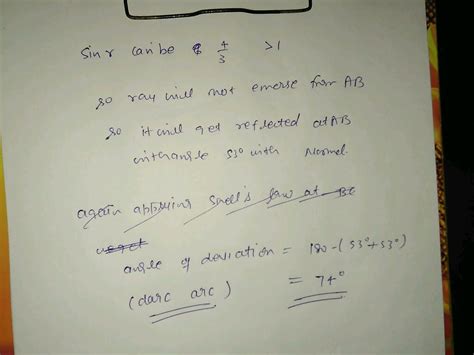 Sin r can be 4/3 >1
so ray will not emerse from AB
so it will get reflected at AB
with angle 53° with Normal.
again applying snell's law at BC
angle of deviation = 180-(53°+53°)
(darc arc) = 74°